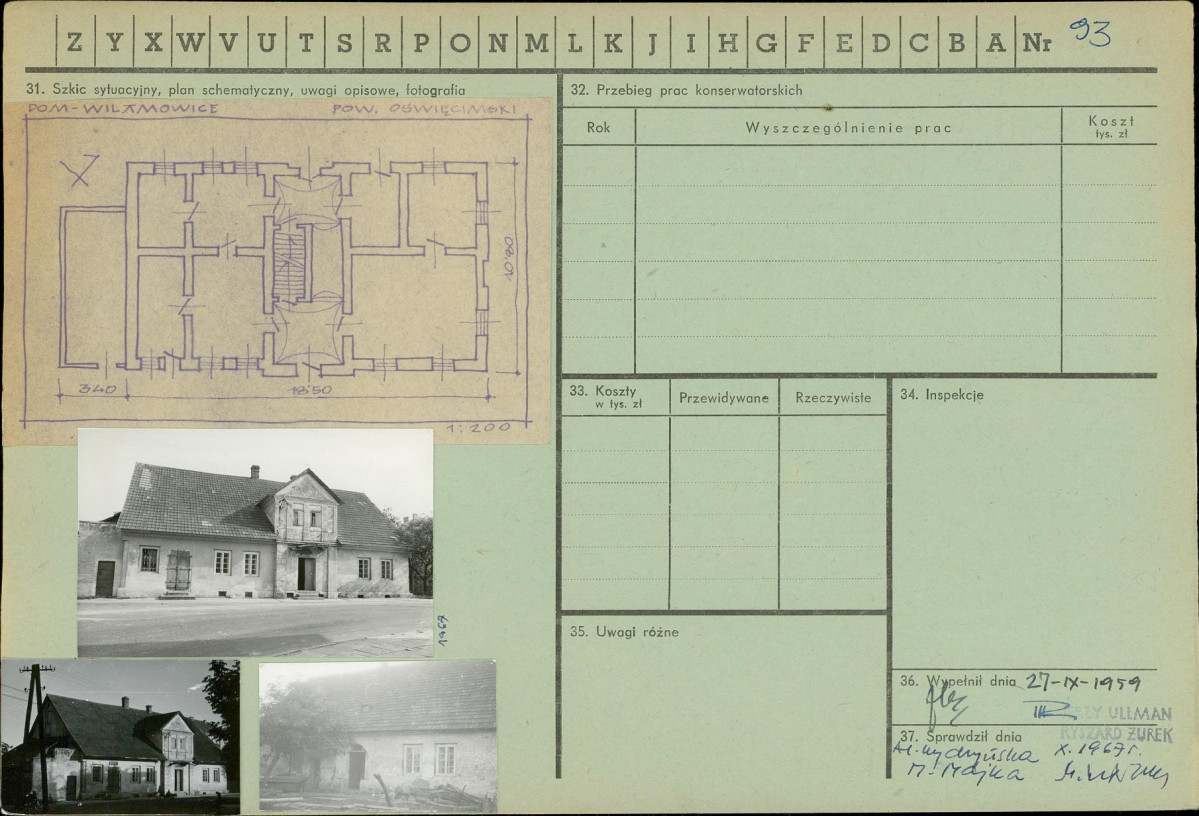 Z Y X W V U T S R P O N M L K J I H G F E D C B A Nr 93
31. Szkic sytuacyjny, plan schematyczny, uwagi opisowe, fotografia
DOM-WILAMOWICE POW. OŚWIĘCIMSKI
10.90
340 18.50
1:200
1959
32. Przebieg prac konserwatorskich
Rok Wyszczególnienie prac Koszt
tys. zł
33. Koszty
w tys. zł
Przewidywane Rzeczywiste
34. Inspekcje
35. Uwagi różne
36. Wypełnił dnia 27-IX-1959
JERZY ULLMAN
RYSZARD ŻUREK
37. Sprawdził dnia
X. 1967r.
M. Majka